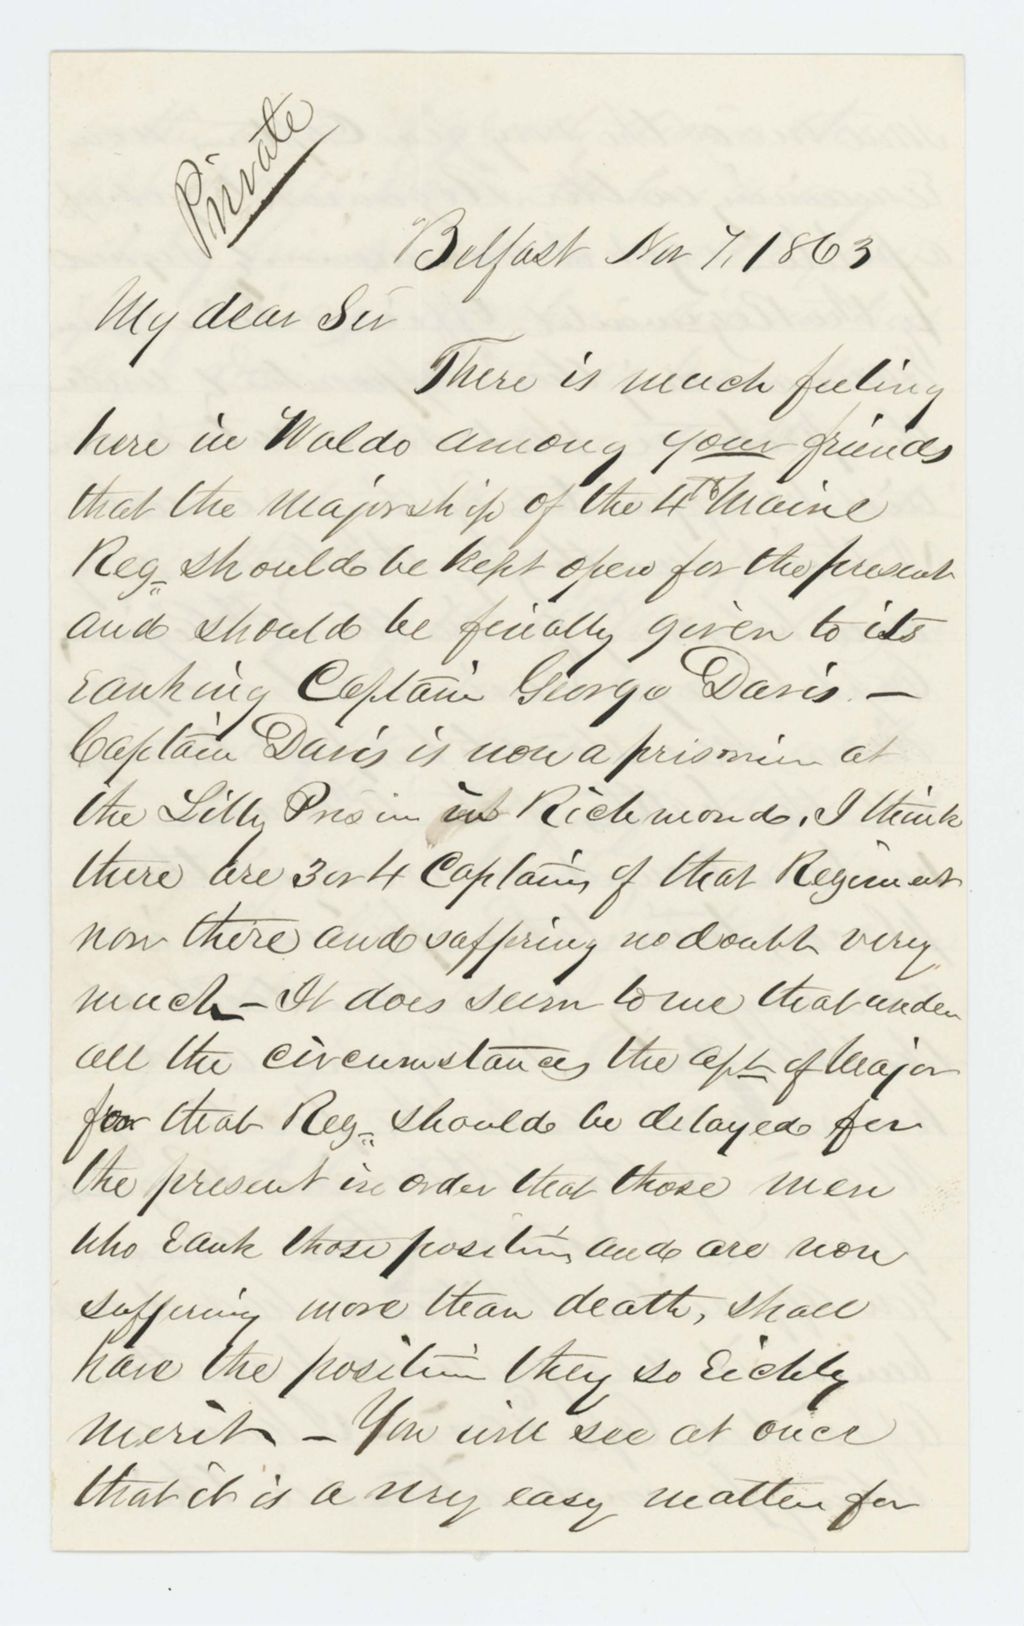 Private
Belfast Nov 7, 1863
My dear Sir
There is much feeling
here in Waldo among your friends
that the Majorship of the 4th Maine
Reg. should be kept open for the present
and should be finally given to its
ranking Captain George Davis. —
Captain Davis is now a prisoner at
the Libby Prison in Richmond. I think
there are 3 or 4 Captains of that Regiment
now there and suffering no doubt very
much — It does seem to me that under
all the circumstances the apt of Major
for that Reg. should be delayed for
the present in order that those men
who rank those position and are now
suffering more than death, shall
have the position they so richly
merit — You will see at once
that it is a very easy matter for